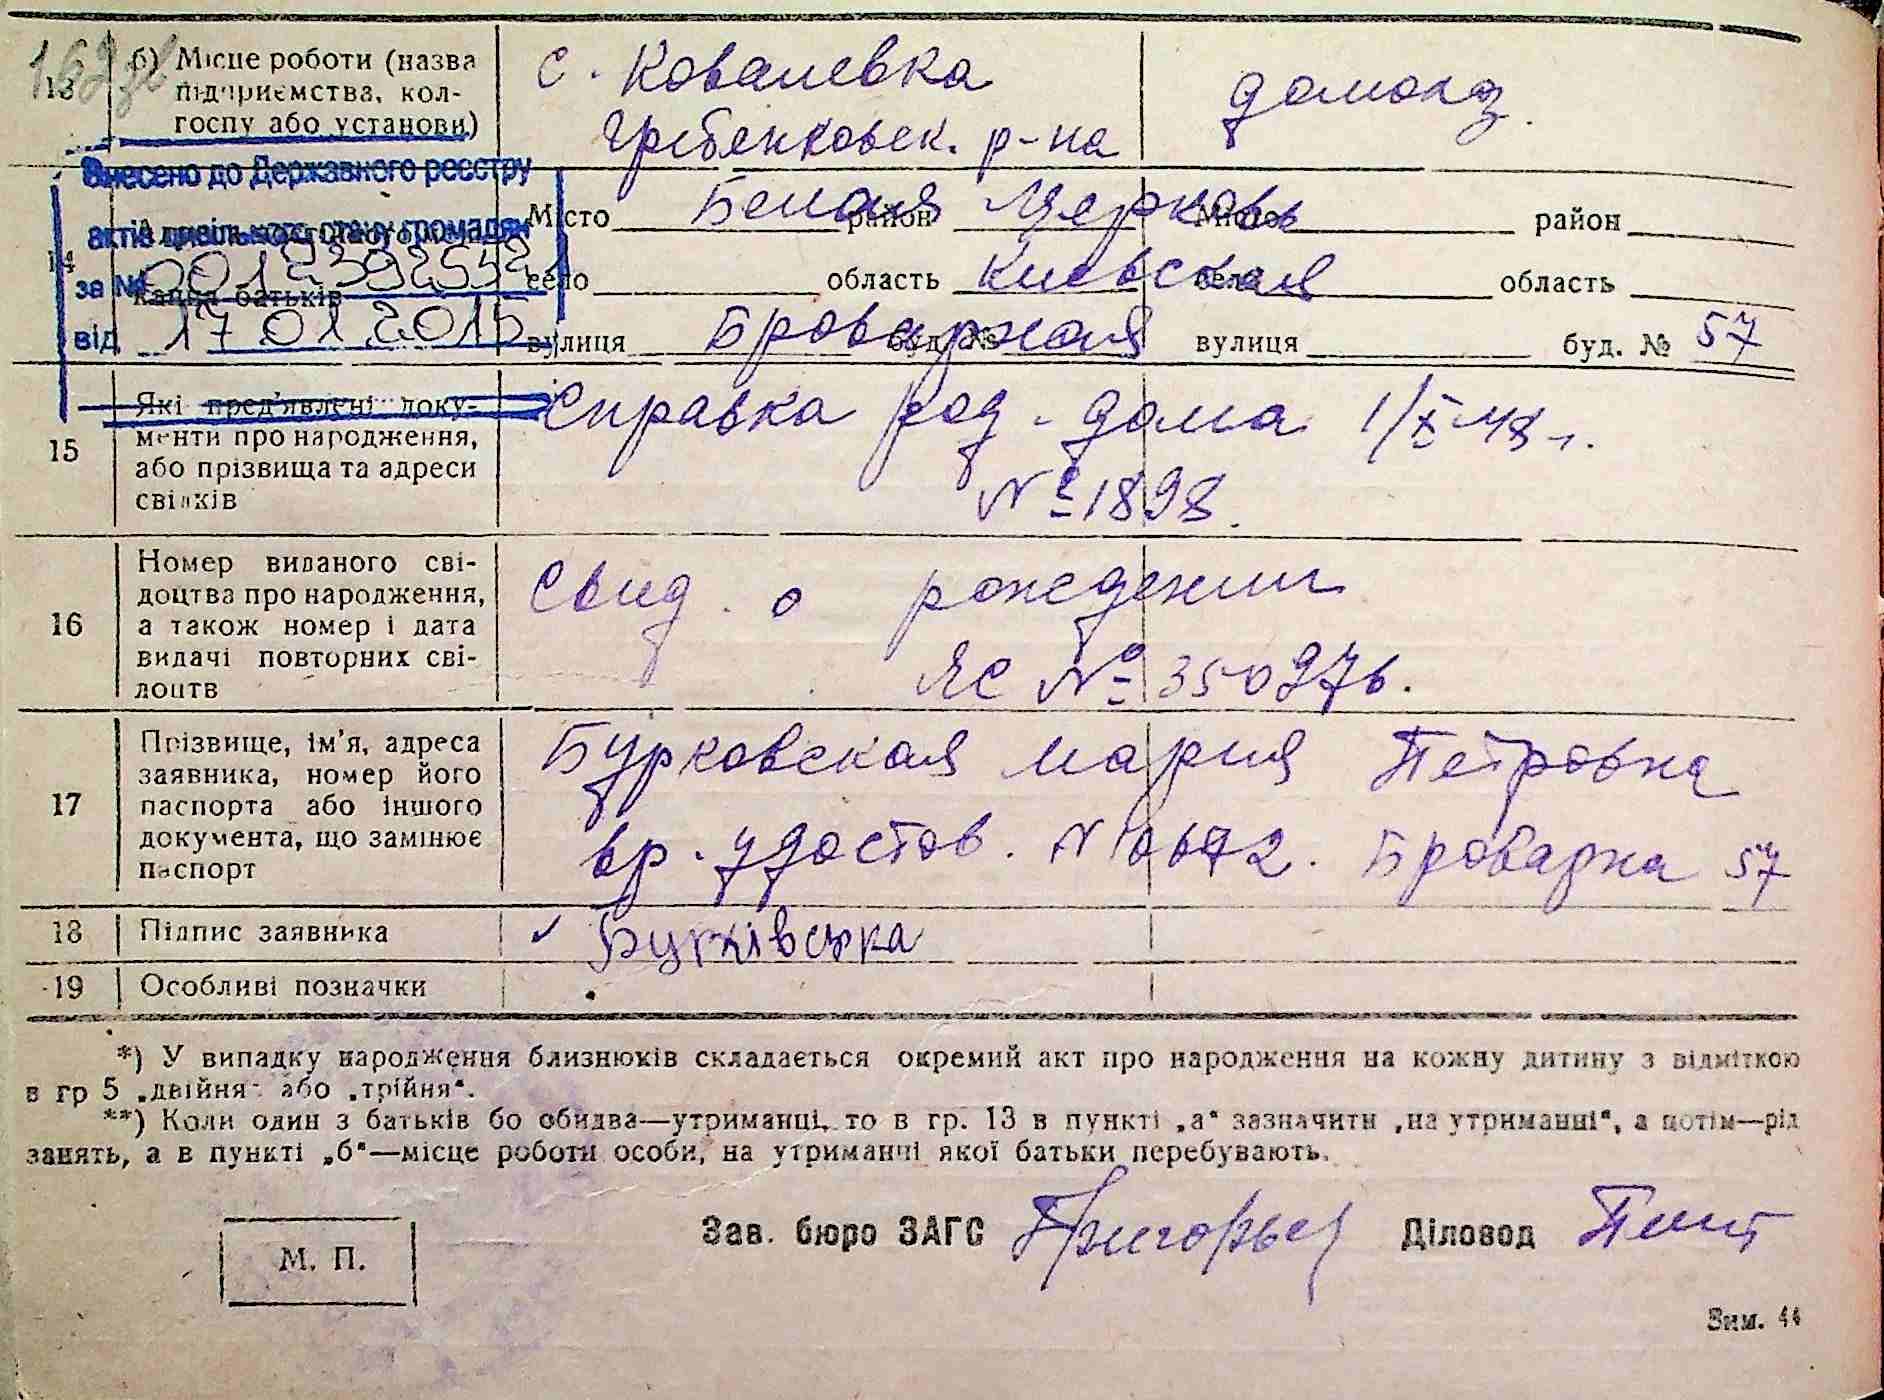 13 б) Місце роботи (назва підприємства, колгоспу або установи)
с. Ковалевка
Гребенковск. р-на
домохоз.
Внесено до Державного реєстру
актів цивільного стану громадян
за № 00123925321
від 17 01 2015
14
кання батьків
Місто Белая район Церковь Місто район
село область Киевская село область
вулиця Броварная буд. № вулиця буд. № 57
15 Які пред'явлені документи про народження, або прізвища та адреси свідків
Справка род. дома 1/X-48 г.
№ 1898.
16 Номер виданого свідоцтва про народження, а також номер і дата видачі повторних свідоцтв
Свид. о рождении
ЯС № 350976.
17 Прізвище, ім'я, адреса заявника, номер його паспорта або іншого документа, що замінює паспорт
Бурковская Мария Петровна
вр. удостов. N Броварна 57
18 Підпис заявника
Бурківська
19 Особливі позначки
*) У випадку народження близнюків складається окремий акт про народження на кожну дитину з відміткою
в гр 5 „двійня" або „трійня".
**) Коли один з батьків бо обидва—утриманці, то в гр. 13 в пункті „а" зазначити „на утриманні", а потім—рід
занять, а в пункті „б"—місце роботи особи, на утриманні якої батьки перебувають.
Зав. бюро ЗАГС Григорьев Діловод
М. П.
Зим. 44